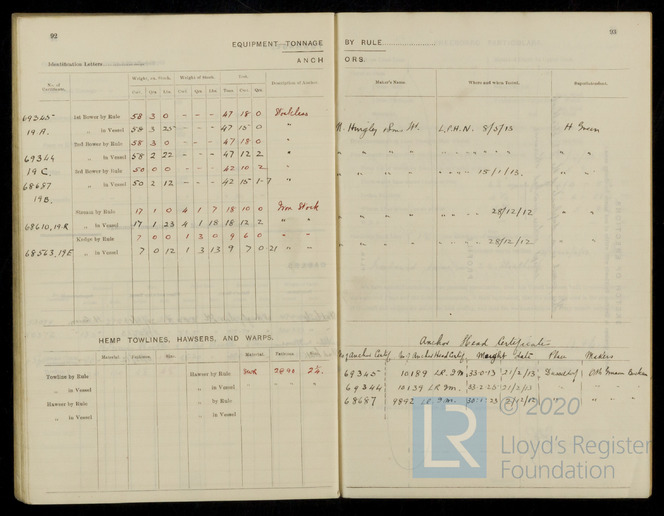 92
EQUIPMENT TONNAGE
ANCH
Identification Letters
No. of Certificate.
Weight, ex. Stock.
Weight of Stock.
Test.
Description of Anchor.
Cwt. Qrs. lbs. Cwt. Qrs. lbs. Tons Cwt. Qrs.
69345 1st Bower by Rule 58 3 0 - - - 47 18 0 Stockless
19 A. „ in Vessel 58 3 25 - - - 47 15 0 "
2nd Bower by Rule 58 3 0 - - - 47 18 0 "
69344 „ in Vessel 58 2 22 - - - 47 12 2 "
19 C. 3rd Bower by Rule 50 0 0 - - - 42 10 2 "
68687 „ in Vessel 50 2 12 - - - 42 15 1-7 "
19 B.
Stream by Rule 17 1 0 4 1 7 18 10 0 Iron Stock
68610, 19.R „ in Vessel 17 1 23 4 1 18 18 12 2 " "
Kedge by Rule 7 0 0 1 3 0 9 6 0 " "
68563, 19E „ in Vessel 7 0 12 1 3 13 9 7 0 21 " "
HEMP TOWLINES, HAWSERS, AND WARPS.
Material. Fathoms. Size. Material. Fathoms. Size.
Towline by Rule Hawsers by Rule
„ in Vessel „ in Vessel " " "
Hawsers by Rule „ by Rule
„ in Vessel „ in Vessel
93
BY RULE
ORS.
Maker's Name. Where and when Tested. Superintendent.
Hingley L.P.H.N. 8/3/13 H Green
" " " " " " " " "
" " " " " " 15/1/13. " "
" " " " " " 28/12/12 " "
" " " " " " 28/12/12 " "
Anchor Head Certificate
No. of Anchor Certif. No. of Anchor Head Certif. Weight Date Place Makers
69345 10189 LR. 21/2/13
69344 10139 LR 21/2/13 " "
68687 9892 LR " "
LR
© 2020
Lloyd's Register
Foundation